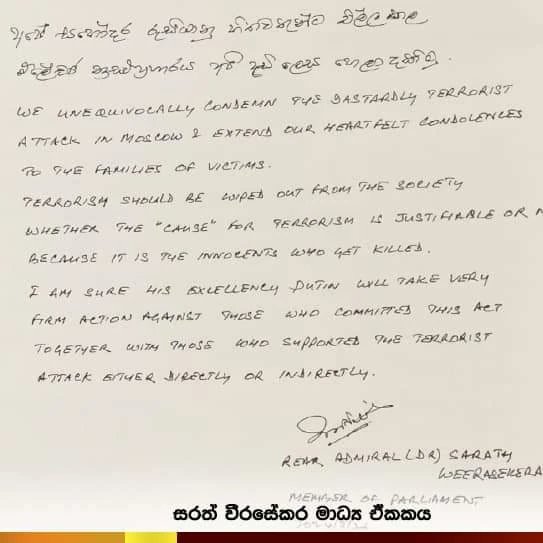 අපේ සහෝදර රුසියානු හිතවතුන්ට එල්ල කළ
ත්‍රස්ත ප්‍රහාරය අපි දැඩි ලෙස හෙලා දකිමු.
WE UNEQUIVOCALLY CONDEMN THE DASTARDLY TERRORIST
ATTACK IN MOSCOW & EXTEND OUR HEARTFELT CONDOLENCES
TO THE FAMILIES OF VICTIMS.
TERRORISM SHOULD BE WIPED OUT FROM THE SOCIETY
WHETHER THE "CAUSE" FOR TERRORISM IS JUSTIFIABLE OR
BECAUSE IT IS THE INNOCENTS WHO GET KILLED.
I AM SURE HIS EXCELLENCY PUTIN WILL TAKE VERY
FIRM ACTION AGAINST THOSE WHO COMMITTED THIS ACT
TOGETHER WITH THOSE WHO SUPPORTED THE TERRORIST
ATTACK EITHER DIRECTLY OR INDIRECTLY.
REAR ADMIRAL (DR) SARATH
WEERASEKERA
MEMBER OF PARLIAMENT
සරත් වීරසේකර මාධ්‍ය ඒකකය